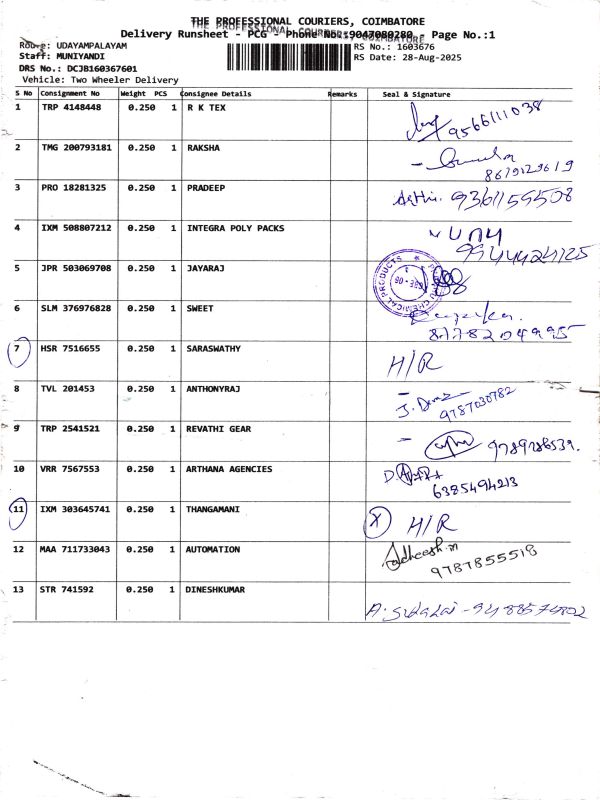 THE PROFESSIONAL COURIERS, COIMBATORE
Delivery Runsheet - PCG - Phone No.: 9047080280 - Page No.:1
Route: UDAYAMPALAYAM RS No.: 1603676
Staff: MUNIYANDI RS Date: 28-Aug-2025
DRS No.: DCJB160367601
Vehicle: Two Wheeler Delivery
S No Consignment No Weight PCS Consignee Details Remarks Seal & Signature
1 TRP 4148448 0.250 1 R K TEX 9566111038
2 TMG 200793181 0.250 1 RAKSHA
8679129619
3 PRO 18281325 0.250 1 PRADEEP 9361155508
4 IXM 508807212 0.250 1 INTEGRA POLY PACKS
9944424125
5 JPR 503069708 0.250 1 JAYARAJ
6 SLM 376976828 0.250 1 SWEET
7 HSR 7516655 0.250 1 SARASWATHY H/R
8 TVL 201453 0.250 1 ANTHONYRAJ
9787030782
9 TRP 2541521 0.250 1 REVATHI GEAR 9789786539.
10 VRR 7567553 0.250 1 ARTHANA AGENCIES
6385494213
11 IXM 303645741 0.250 1 THANGAMANI X H/R
12 MAA 711733043 0.250 1 AUTOMATION
9787855518
13 STR 741592 0.250 1 DINESHKUMAR